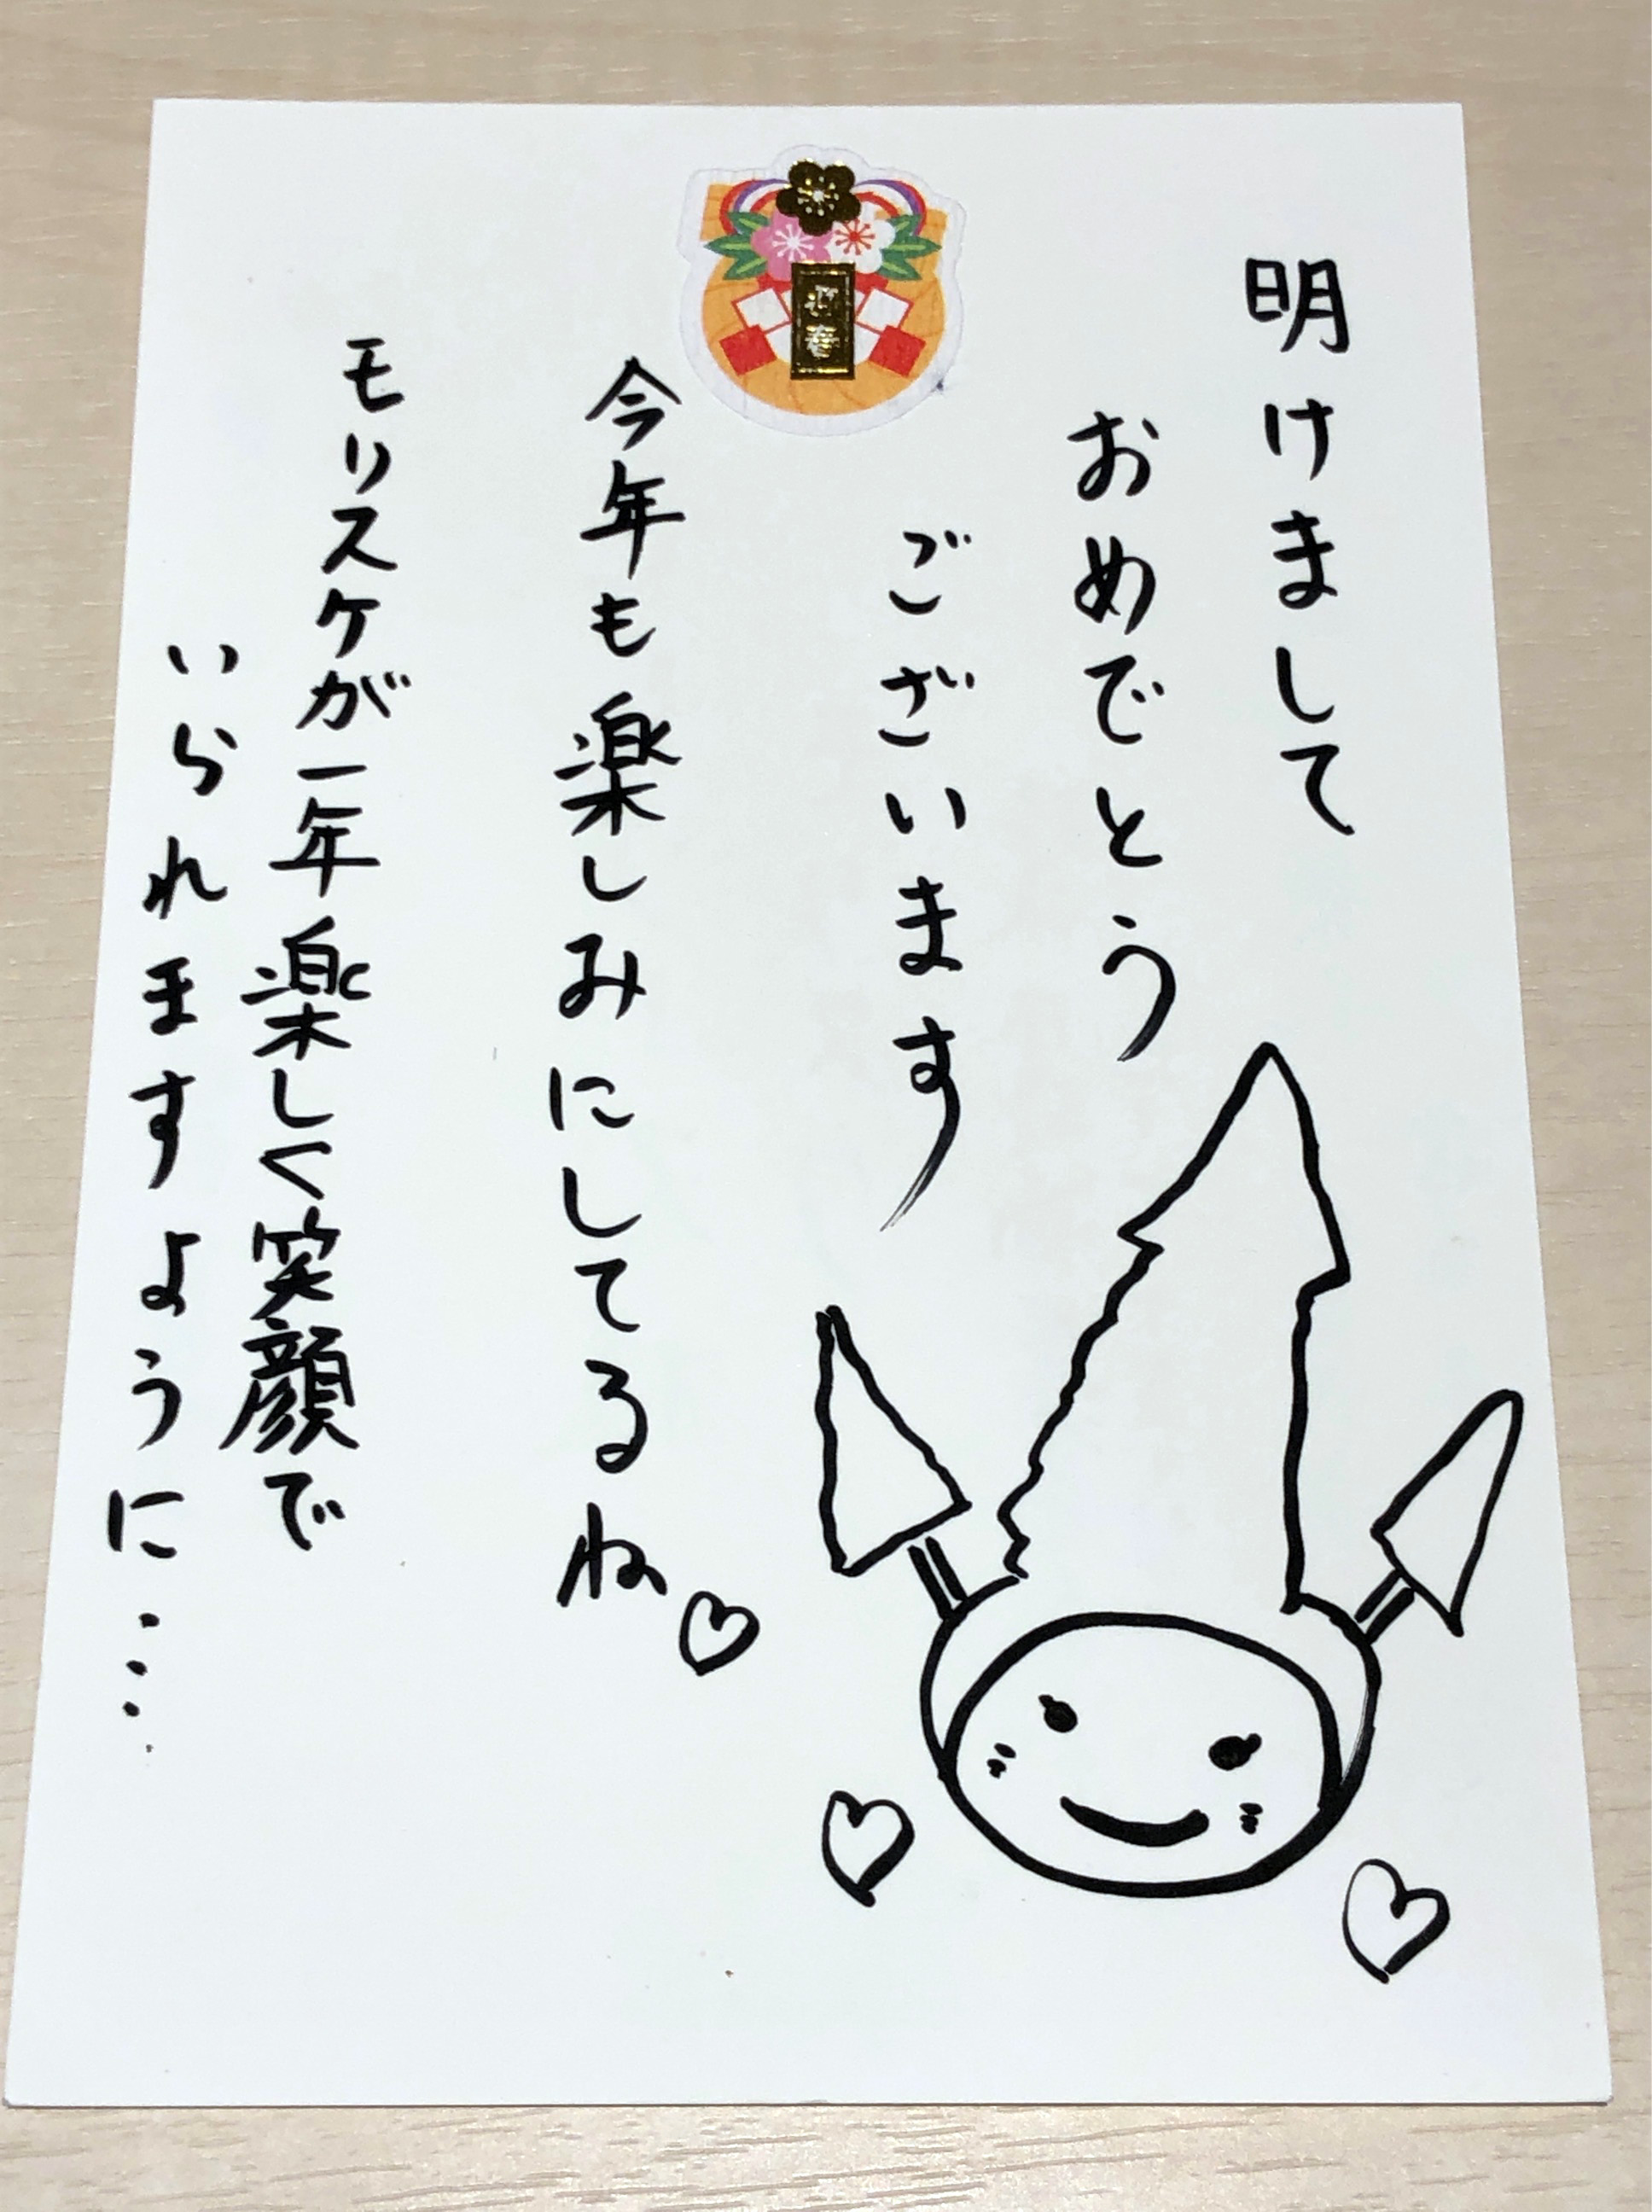 明けまして
おめでとう
ございます
迎春
今年も楽しみにしてるね♡
モリスケが一年楽しく笑顔で
いられますように…